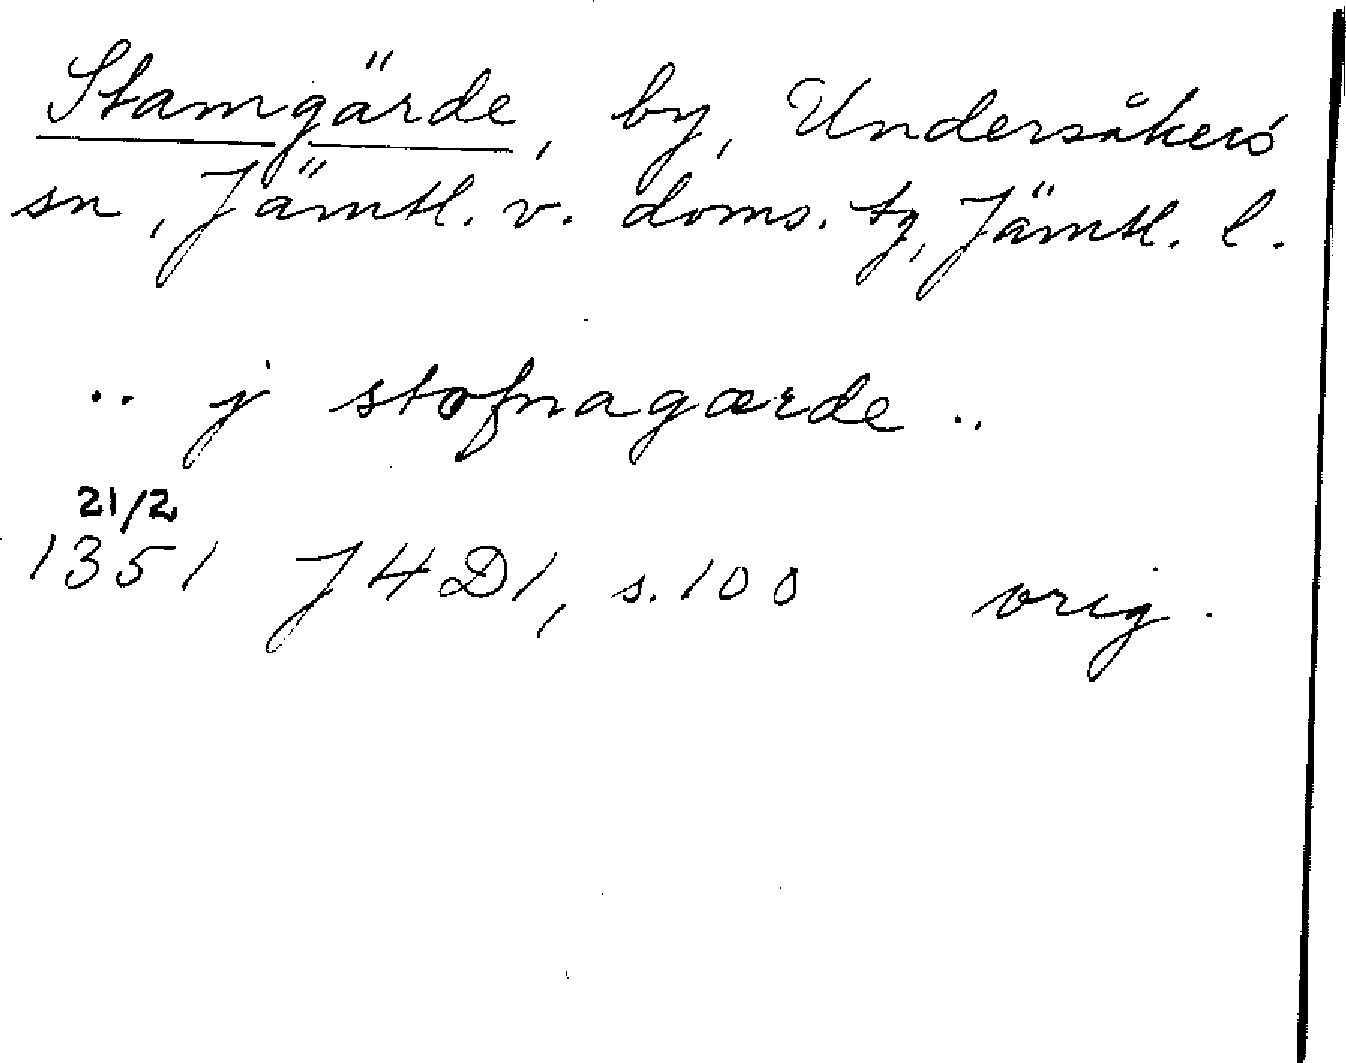 Stamgärde, by, Undersåkers
sn, Jämtl. v. doms. tg, Jämtl. l.
.. j stofnagærde ..
21/2
1351 J H D 1, s. 100 orig.